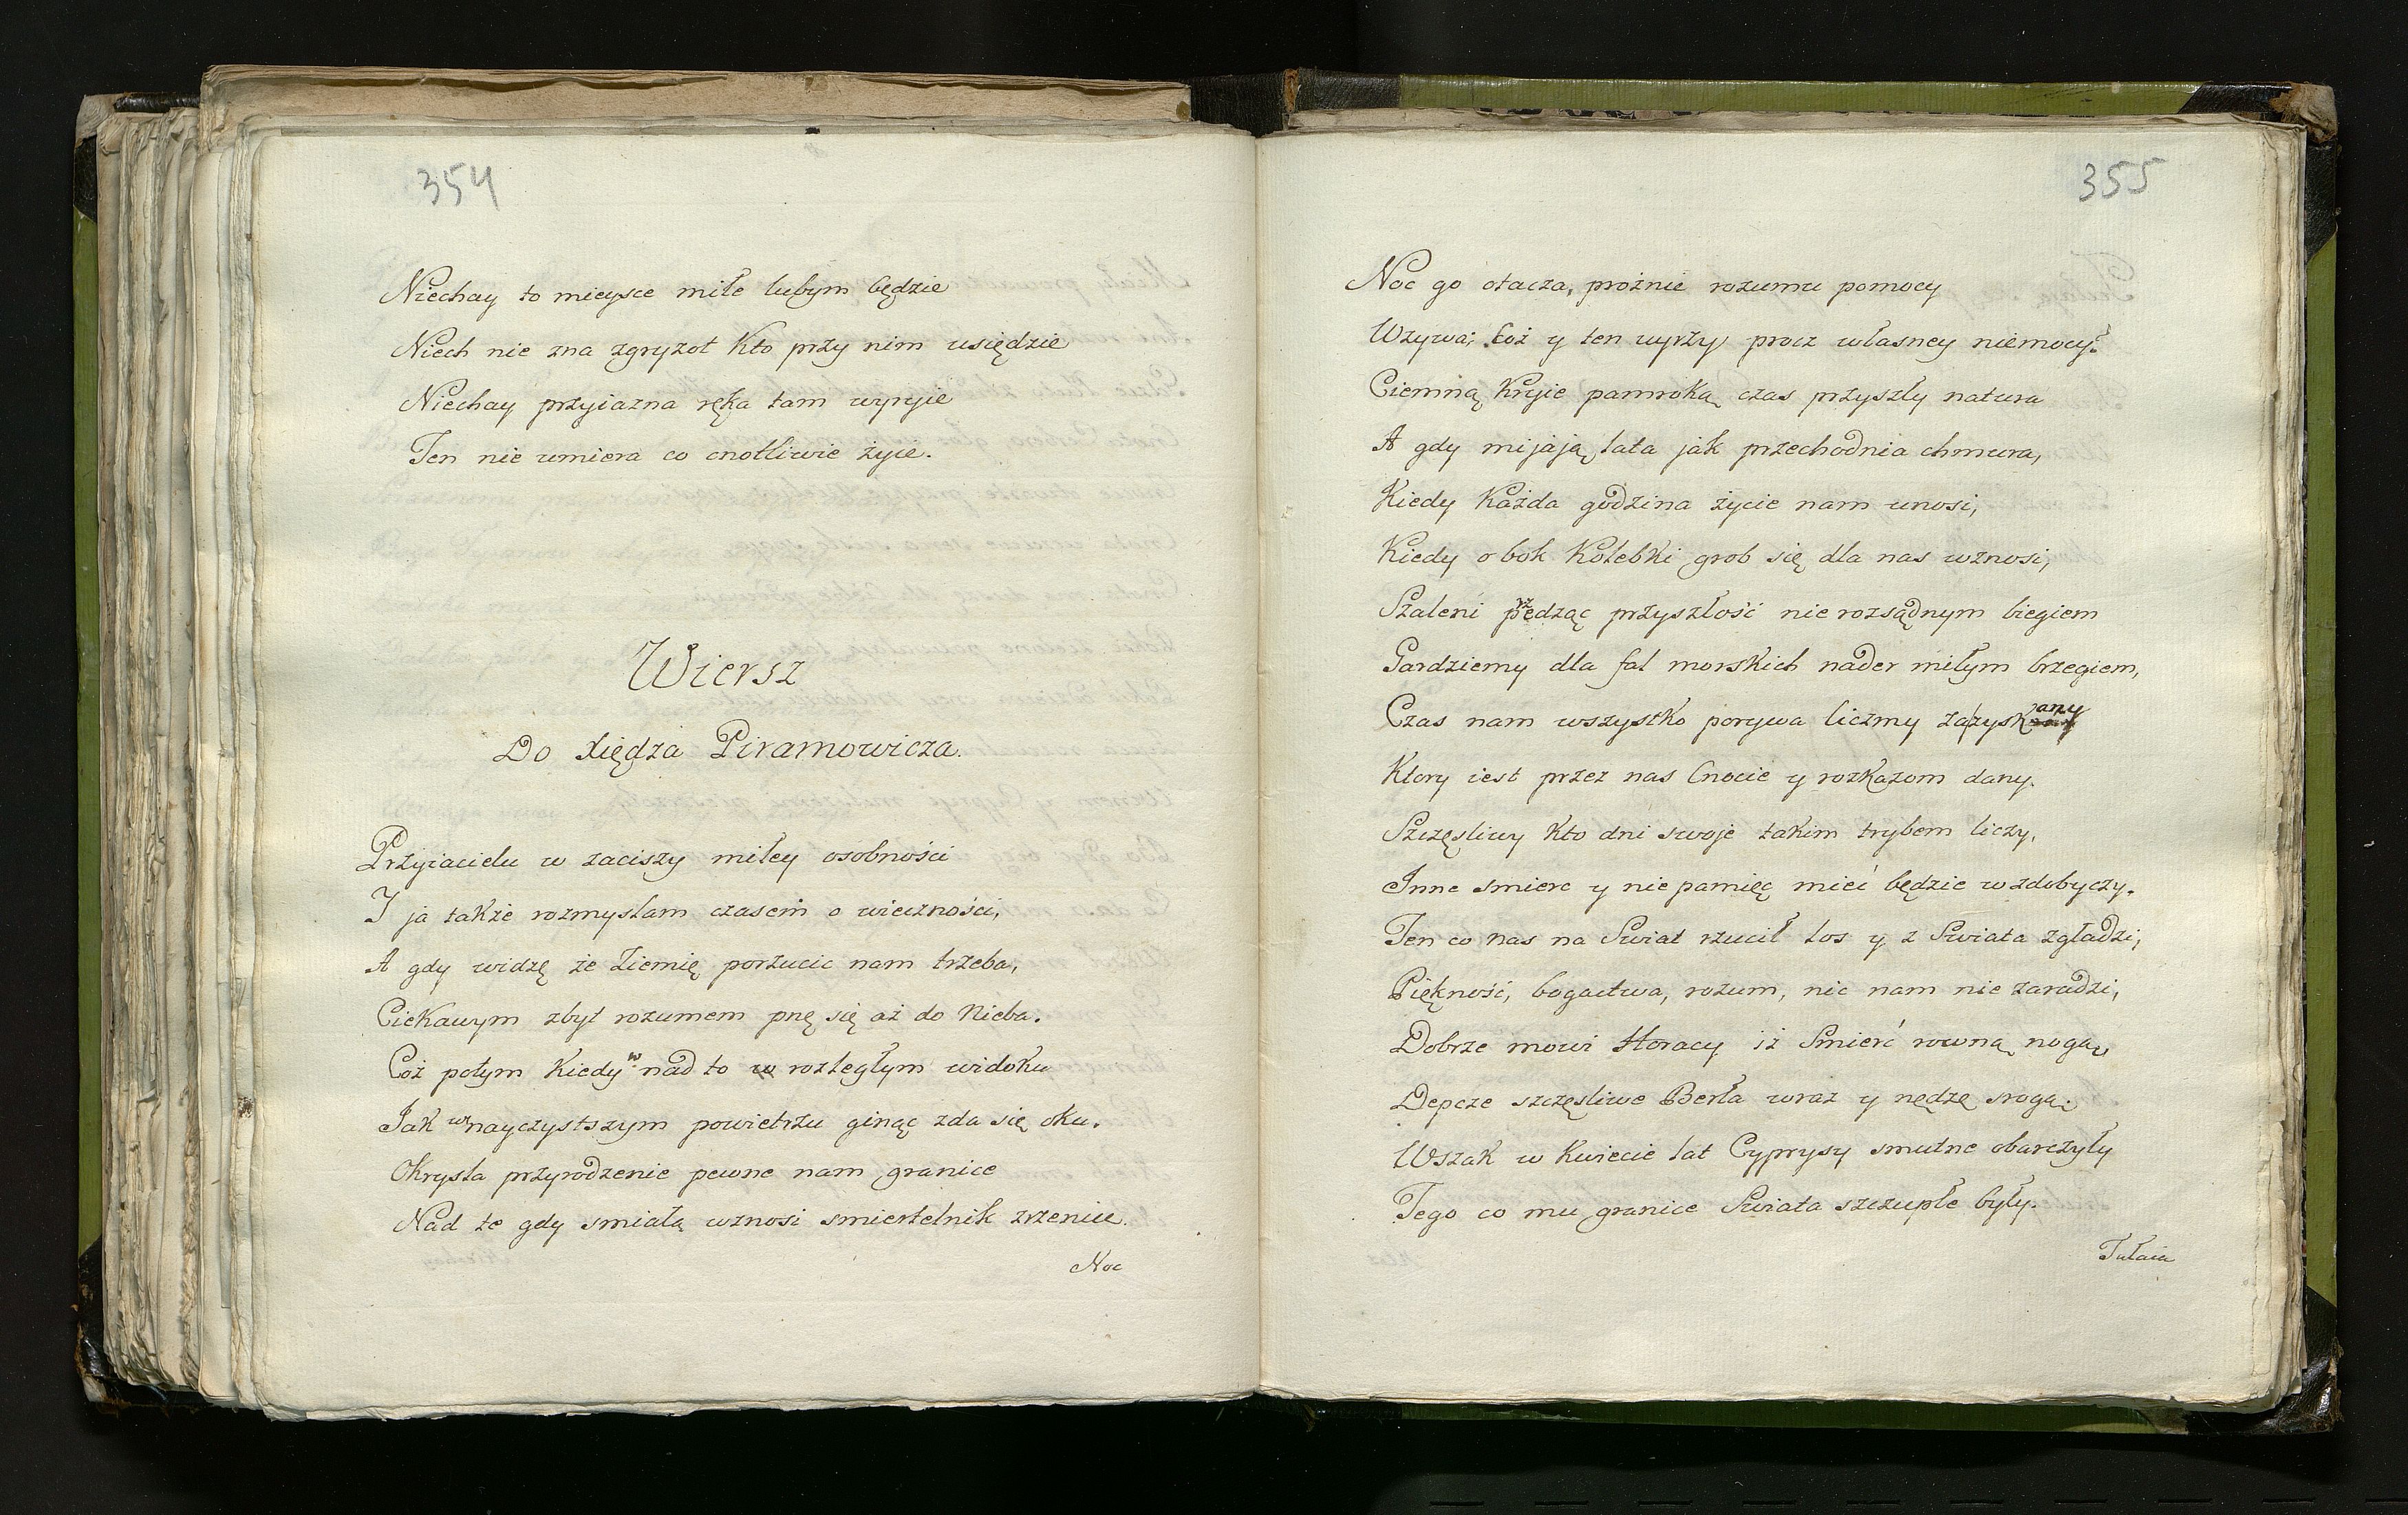 354
Niechay to mieysce miłe lubym będzie
Niech nie zna zgryzot Kto przy nim usiędzie
Niechay przyiazna ręka tam wyryie
Ten nie umiera co cnotliwie żyie.
Wiersz
Do Xiędza Piramowicza.
Przyiacielu w zaciszy miłey osobności
I ja także rozmyslam czasem o wieczności,
A gdy widzę że Ziemię porzucic nam trzeba,
Ciekawym zbyt rozumem pnę się aż do Nieba.
Coż potym Kiedy w nad to w rozległym widoku
Jak w nayczystszym powietrzu ginąc zda się oku.
Okrysla przyrodzenie pewne nam granice
Nad te gdy smiałą wznosi smiertelnik zrzenice.
Noc
355
Noc go otacza, prożnie rozumu pomocy
Wzywa; Coż y ten uyrzy procz własney niemocy?
Ciemną Kryie pamroką czas przyszły natura
A gdy mijają lata jak przechodnia chmura,
Kiedy Każda godzina życie nam unosi,
Kiedy obok Kolebki grob się dla nas wznosi,
Szaleni pędząc przyszłość nie rozsądnym biegiem
Gardziemy dla fal morskich nader miłym brzegiem,
Czas nam wszystko porywa liczmy za zyskany
Ktory iest przez nas Cnocie y rozkazom dany.
Szczęsliwy Kto dni swoje takim trybem liczy,
Inne smierc y nie pamięc mieć będzie w zdobyczy.
Ten co nas na Swiat rzucił los y z Swiata zgładzi,
Piękność, bogactwa, rozum, nic nam nie zaradzi,
Dobrze mowi Horacy iż Smierć rowną nogą,
Depcze szczęsliwe Berła wraz y nędzę srogą.
Wszak w Kwiecie lat Cyprysy smutne obarczyły
Tego co mu granice Swiata szczupłe były.
Tułaia